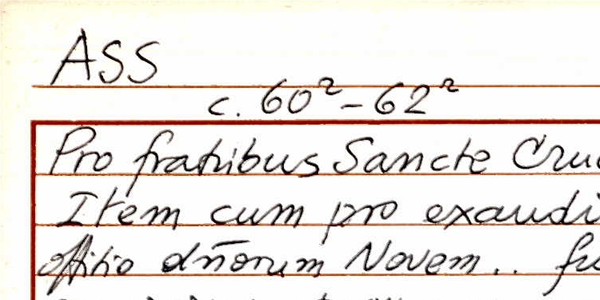 ASS
c. 60² - 62²
Pro fratribus Sancte Cruc
Item cum pro exaudi
offitio dn̄orum Novem.. fu